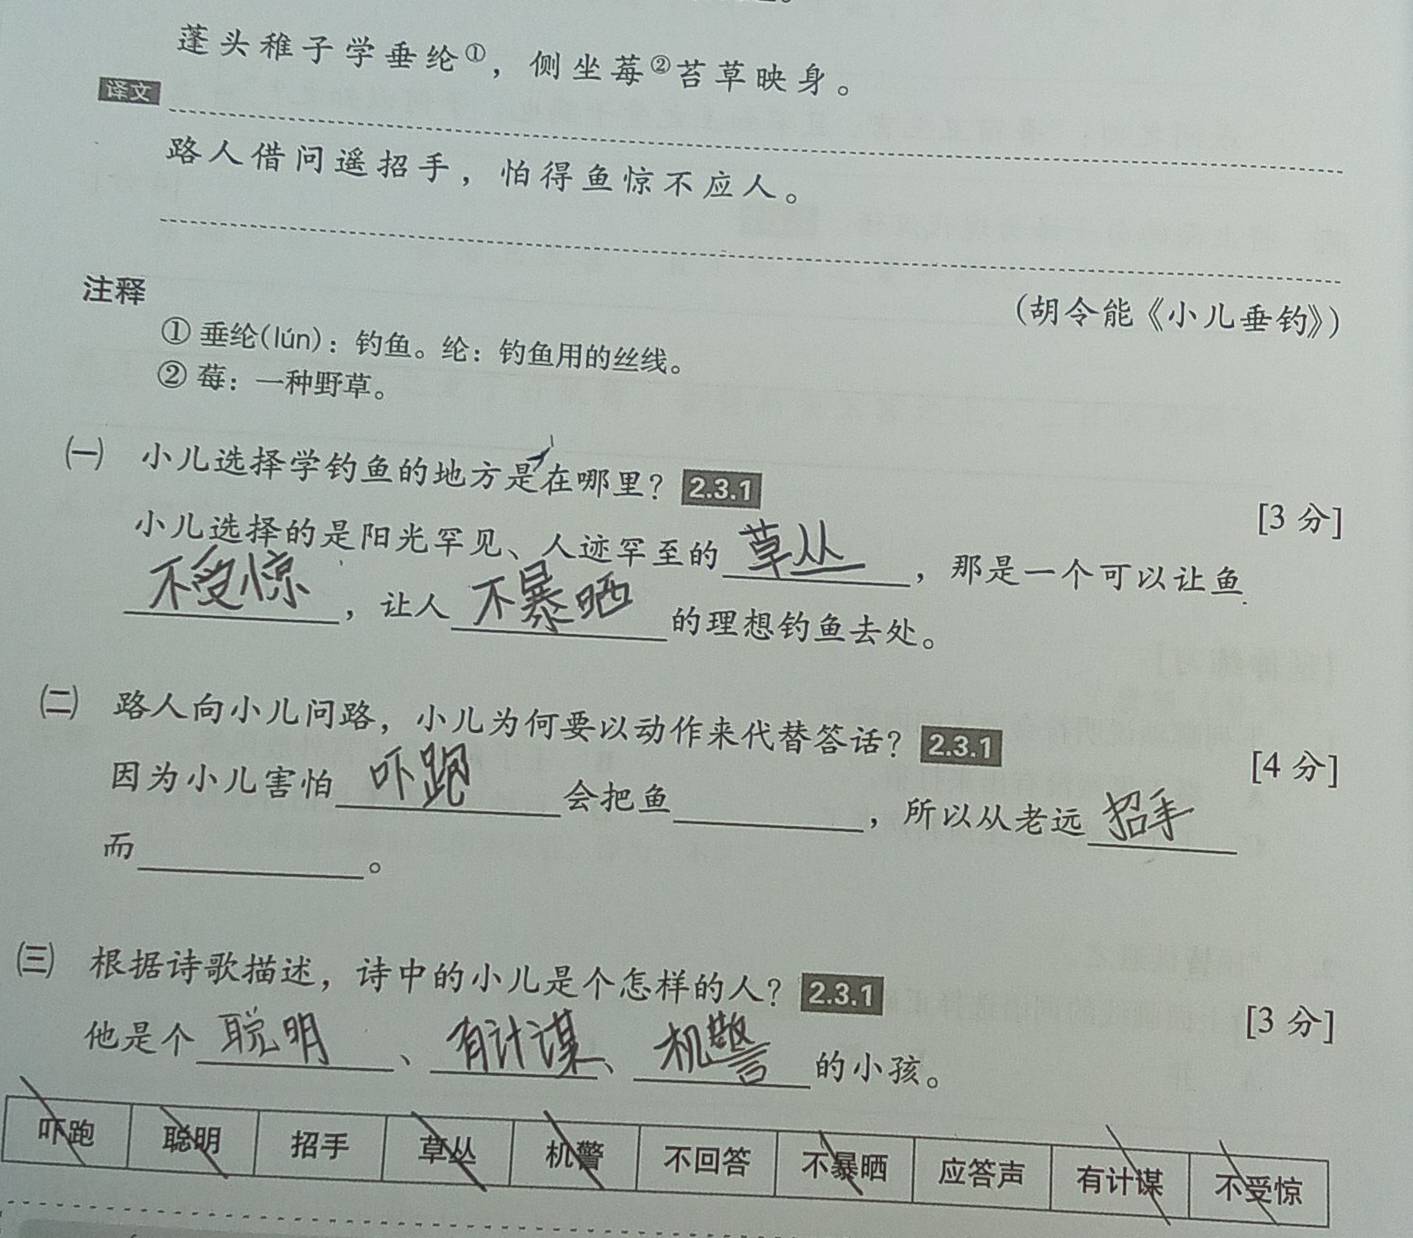 蓬头稚子学垂纶①，侧坐莓②苔草映身。
译文
路人借问遥招手，怕得鱼惊不应人。
（胡令能《小儿垂钓》）
注释
① 垂纶(lún)：钓鱼。纶：钓鱼用的丝线。
② 莓：一种野草。
㈠ 小儿选择学钓鱼的地方是在哪里？ 2.3.1
[3 分]
小儿选择的是阳光罕见、人迹罕至的 草丛 ，那是一个可以让鱼
不受惊 ，让人 不暴晒 的理想钓鱼去处。
㈡ 路人向小儿问路，小儿为何要以动作来代替答话？ 2.3.1
[4 分]
因为小儿害怕 吓跑 会把鱼 ，所以从老远 招手
而 。
㈢ 根据诗歌描述，诗中的小儿是个怎样的人？ 2.3.1
[3 分]
他是个 聪明 、 有计谋 、 机警 的小孩。
吓跑 聪明 招手 草丛 机警 不回答 不暴晒 应答声 有计谋 不受惊